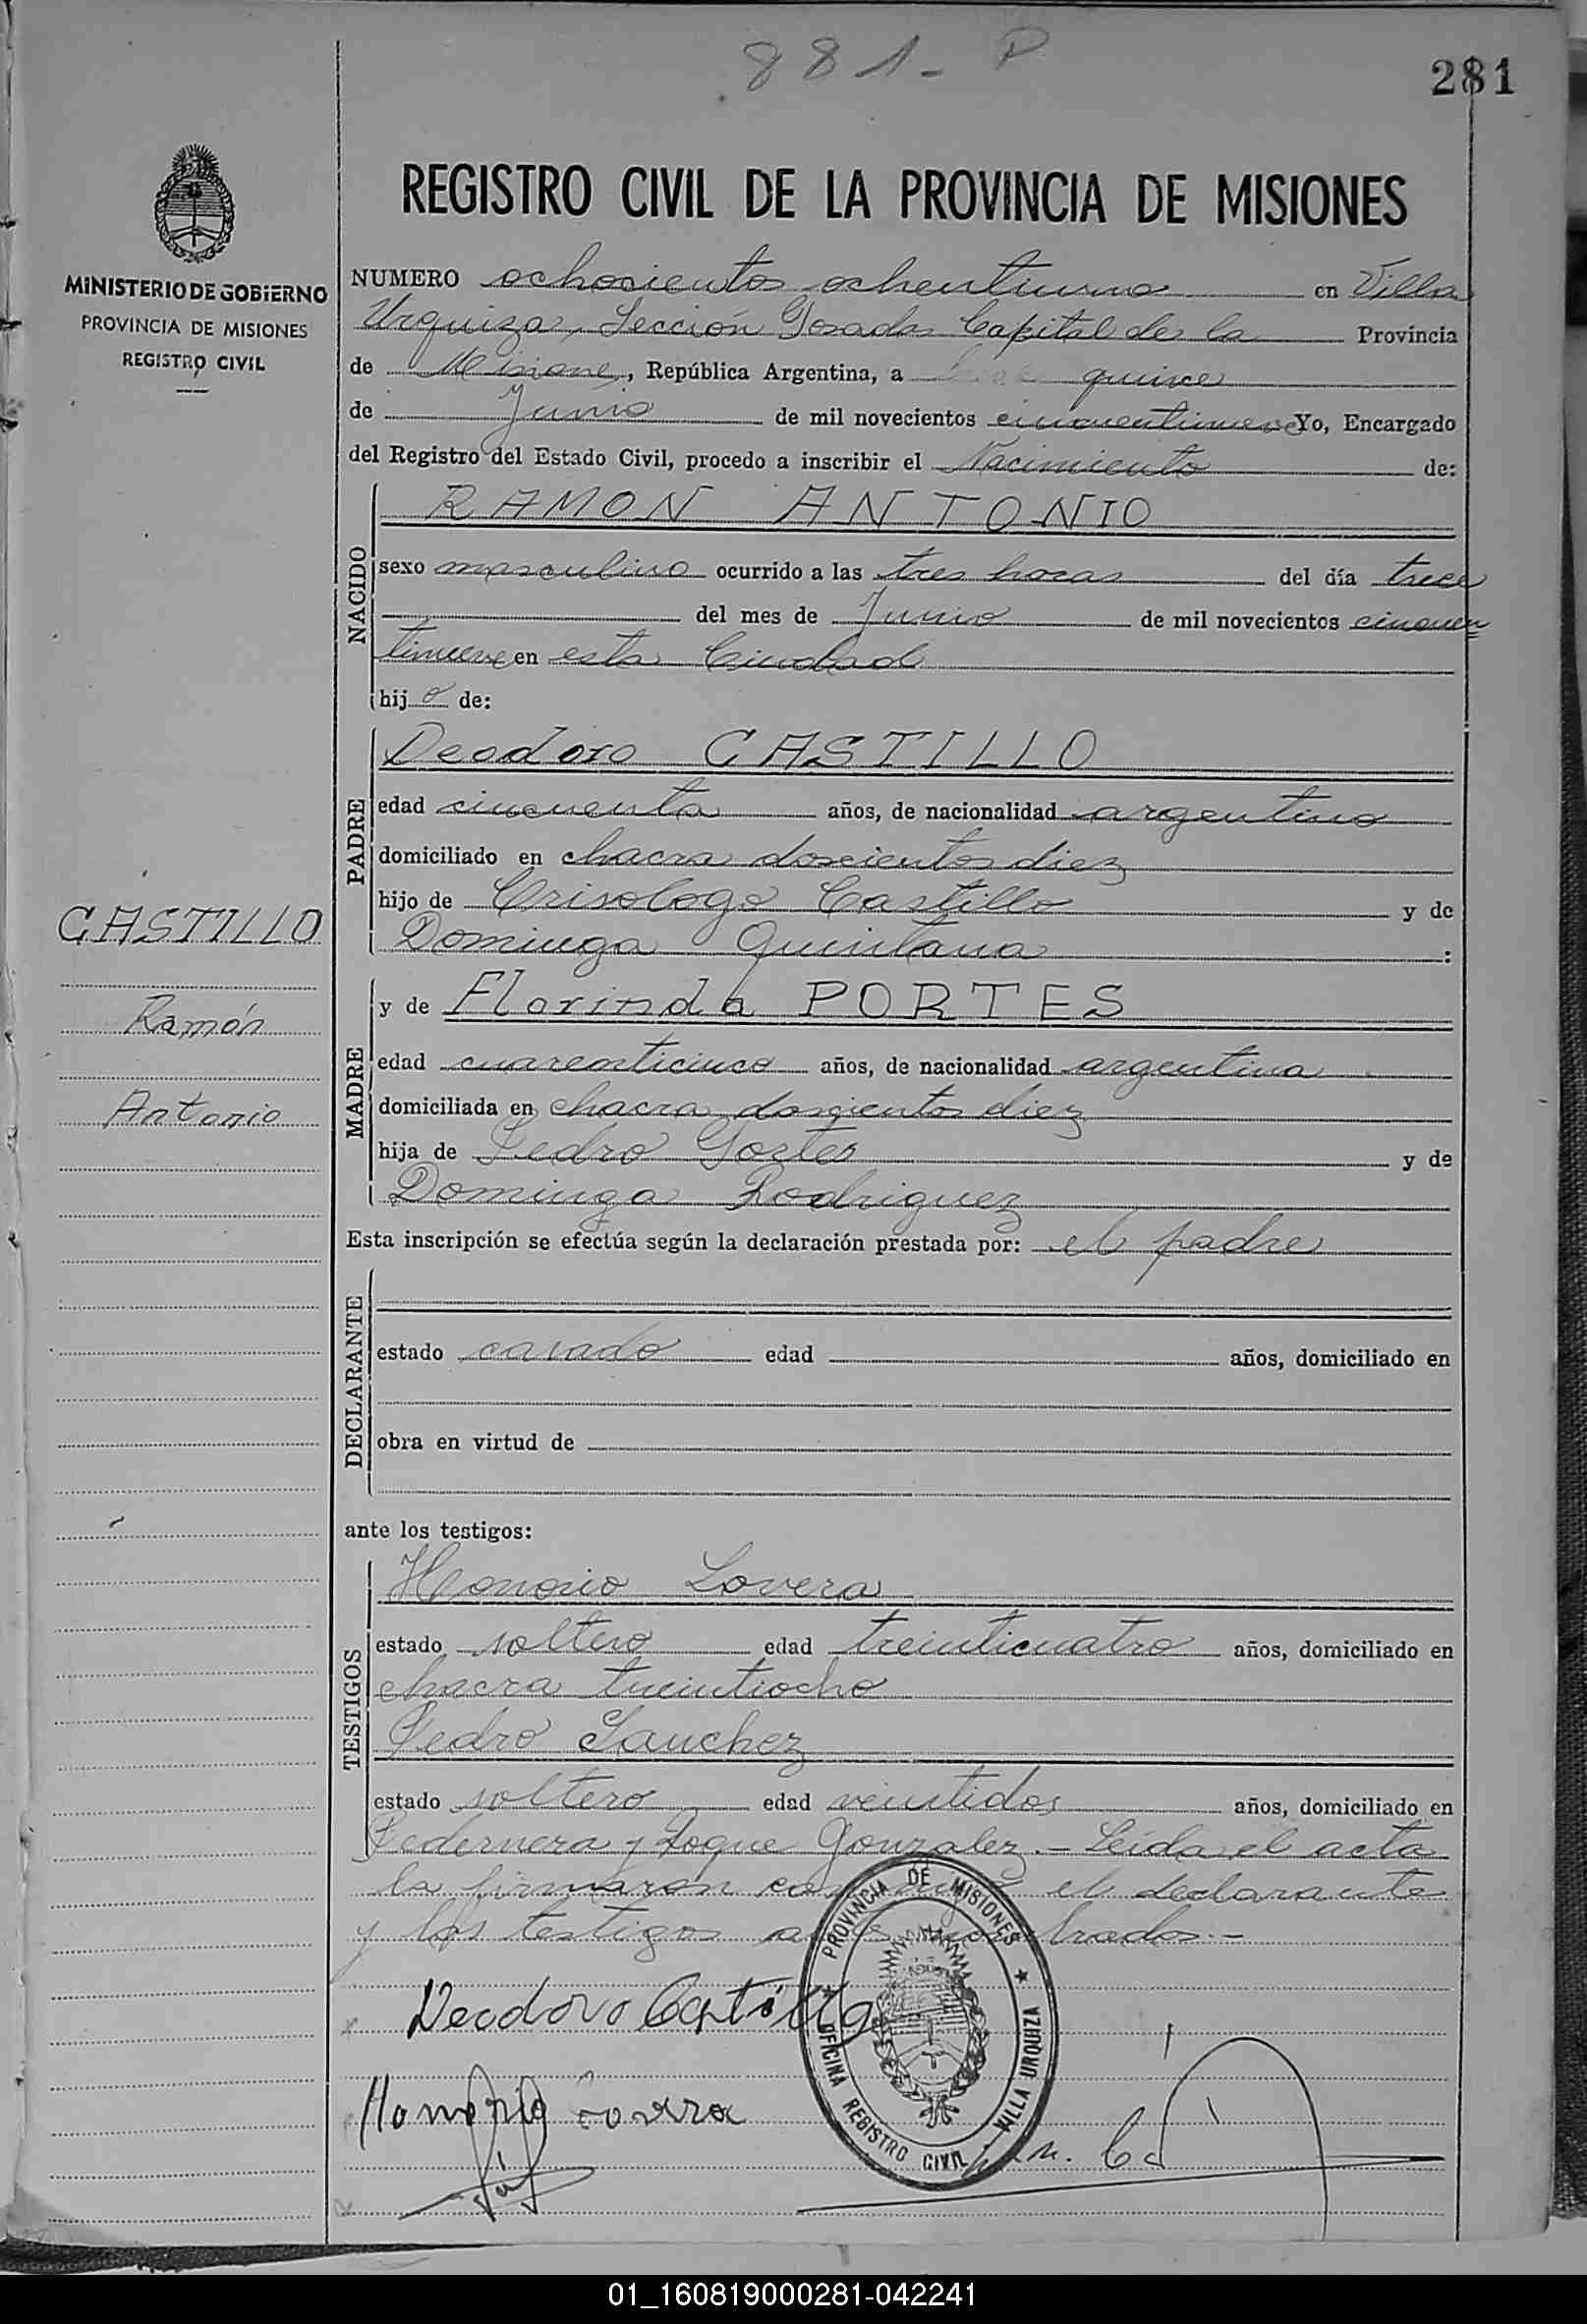 881- P
281
MINISTERIO DE GOBIERNO
PROVINCIA DE MISIONES
REGISTRO CIVIL
REGISTRO CIVIL DE LA PROVINCIA DE MISIONES
NUMERO ochocientos ochentiuno en Villa
Urquiza, Sección Posadas Capital de la Provincia
de Misiones, República Argentina, a quince
de Junio de mil novecientos cincuentinueve Yo, Encargado
del Registro del Estado Civil, procedo a inscribir el Nacimiento de:
NACIDO
RAMON ANTONIO
sexo masculino ocurrido a las tres horas del día trece
del mes de Junio de mil novecientos cincuen
tinueve en esta Ciudad
hijo de:
PADRE
Deodoro CASTILLO
edad cincuenta años, de nacionalidad argentino
domiciliado en chacra doscientos diez
hijo de Crisologo Castillo y de
Dominga Quintana :
CASTILLO
Ramón
Antonio
MADRE
y de Florinda PORTES
edad cuarenticinco años, de nacionalidad argentina
domiciliada en chacra doscientos diez
hija de Pedro Portes y de
Dominga Rodriguez
Esta inscripción se efectúa según la declaración prestada por: el padre
DECLARANTE
estado casado edad años, domiciliado en
obra en virtud de
ante los testigos:
TESTIGOS
Honorio Lovera
estado soltero edad treinticuatro años, domiciliado en
chacra treintiocho
Pedro Sanchez
estado soltero edad veintidos años, domiciliado en
Pedernera y Roque Gonzalez.- Leida el acta
la firmaron conmigo el declarante
y los testigos nombrados.-
PROVINCIA DE MISIONES
OFICINA REGISTRO CIVIL VILLA URQUIZA
Deodoro Castillo
Honorio Lovera
01_160819000281-042241